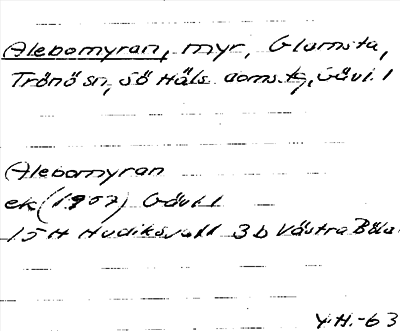 Alebomyran, myr, Glumsta,
Trönö sn, Sö Häls doms.tg, Gävl. l
Alebomyran
ek (1907) Gävl. l
15H Hudiksvall 3b Västra Böle
Y.H.-63